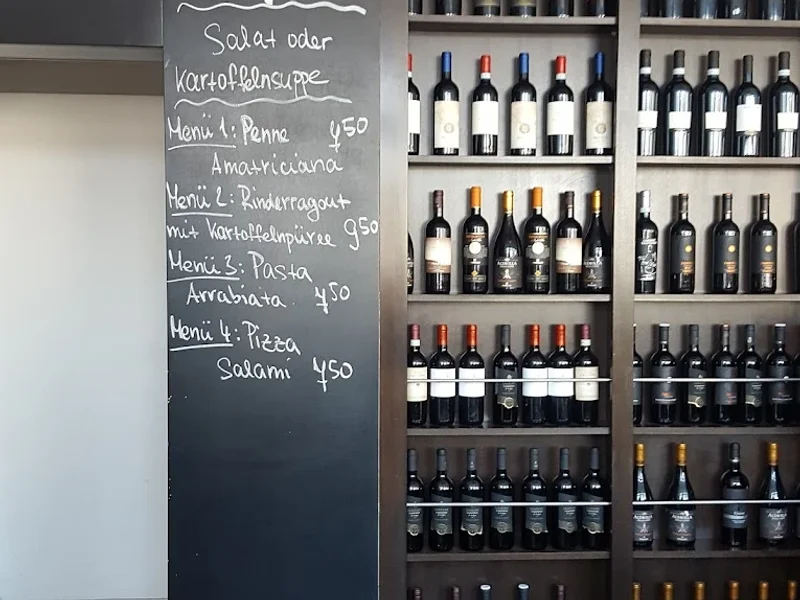 Salat oder
Kartoffelnsuppe
Menü 1: Penne 750
Amatriciana
Menü 2: Rinderragout
mit Kartoffelnpüree 950
Menü 3: Pasta
Arrabiata 750
Menü 4: Pizza
Salami 750